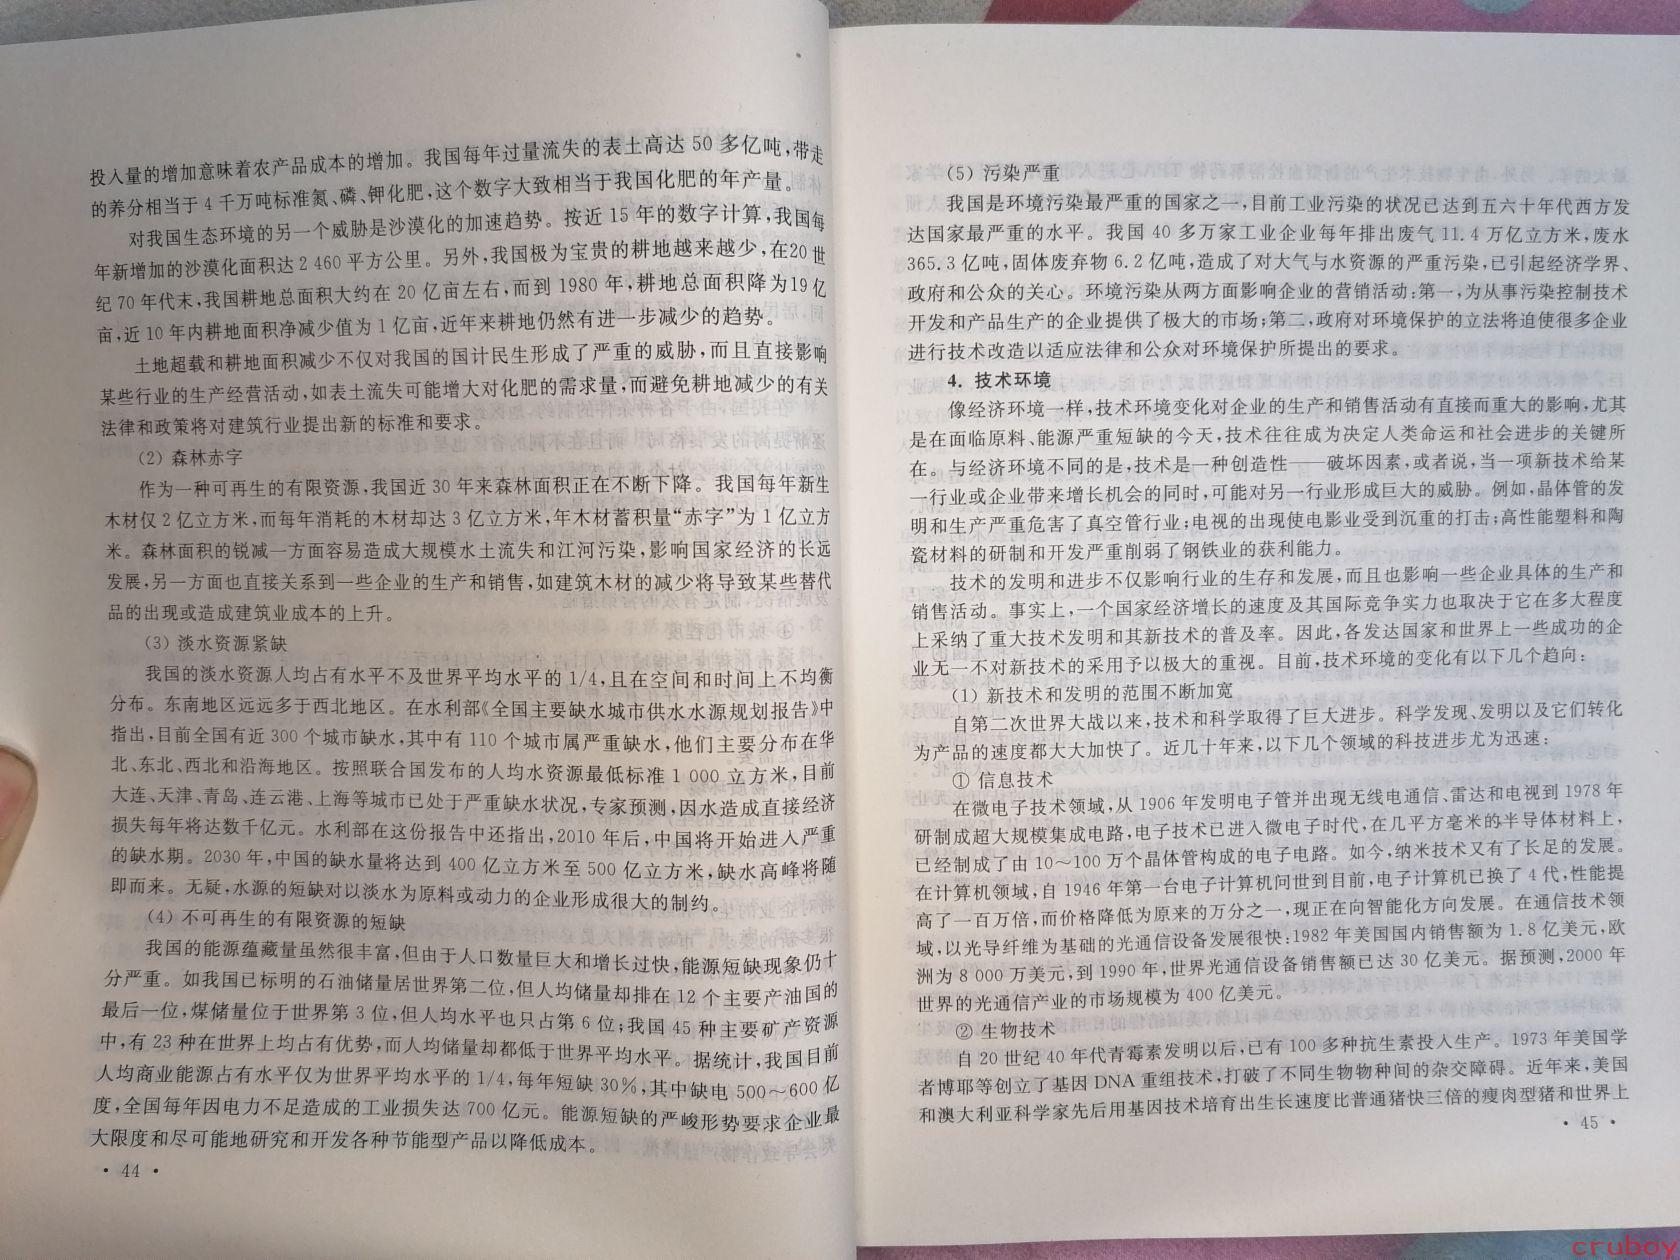 投入量的增加意味着农产品成本的增加。我国每年过量流失的表土高达 50 多亿吨,带走
的养分相当于 4 千万吨标准氮、磷、钾化肥,这个数字大致相当于我国化肥的年产量。
对我国生态环境的另一个威胁是沙漠化的加速趋势。按近 15 年的数字计算,我国每
年新增加的沙漠化面积达 2 460 平方公里。另外,我国极为宝贵的耕地越来越少,在20 世
纪 70 年代末,我国耕地总面积大约在 20 亿亩左右,而到 1980 年,耕地总面积降为19 亿
亩,近 10 年内耕地面积净减少值为 1 亿亩,近年来耕地仍然有进一步减少的趋势。
土地超载和耕地面积减少不仅对我国的国计民生形成了严重的威胁,而且直接影响
某些行业的生产经营活动,如表土流失可能增大对化肥的需求量,而避免耕地减少的有关
法律和政策将对建筑行业提出新的标准和要求。
(2) 森林赤字
作为一种可再生的有限资源,我国近 30 年来森林面积正在不断下降。我国每年新生
木材仅 2 亿立方米,而每年消耗的木材却达 3 亿立方米,年木材蓄积量“赤字”为 1 亿立方
米。森林面积的锐减一方面容易造成大规模水土流失和江河污染,影响国家经济的长远
发展,另一方面也直接关系到一些企业的生产和销售,如建筑木材的减少将导致某些替代
品的出现或造成建筑业成本的上升。
(3) 淡水资源紧缺
我国的淡水资源人均占有水平不及世界平均水平的 1/4,且在空间和时间上不均衡
分布。东南地区远远多于西北地区。在水利部《全国主要缺水城市供水水源规划报告》中
指出,目前全国有近 300 个城市缺水,其中有 110 个城市属严重缺水,他们主要分布在华
北、东北、西北和沿海地区。按照联合国发布的人均水资源最低标准 1 000 立方米,目前
大连、天津、青岛、连云港、上海等城市已处于严重缺水状况,专家预测,因水造成直接经济
损失每年将达数千亿元。水利部在这份报告中还指出,2010 年后,中国将开始进入严重
的缺水期。2030 年,中国的缺水量将达到 400 亿立方米至 500 亿立方米,缺水高峰将随
即而来。无疑,水源的短缺对以淡水为原料或动力的企业形成很大的制约。
(4) 不可再生的有限资源的短缺
我国的能源蕴藏量虽然很丰富,但由于人口数量巨大和增长过快,能源短缺现象仍十
分严重。如我国已标明的石油储量居世界第二位,但人均储量却排在 12 个主要产油国的
最后一位,煤储量位于世界第 3 位,但人均水平也只占第 6 位;我国 45 种主要矿产资源
中,有 23 种在世界上均占有优势,而人均储量却都低于世界平均水平。据统计,我国目前
人均商业能源占有水平仅为世界平均水平的 1/4,每年短缺 30%,其中缺电 500～600 亿
度,全国每年因电力不足造成的工业损失达 700 亿元。能源短缺的严峻形势要求企业最
大限度和尽可能地研究和开发各种节能型产品以降低成本。
• 44 •
(5) 污染严重
我国是环境污染最严重的国家之一,目前工业污染的状况已达到五六十年代西方发
达国家最严重的水平。我国 40 多万家工业企业每年排出废气 11.4 万亿立方米,废水
365.3 亿吨,固体废弃物 6.2 亿吨,造成了对大气与水资源的严重污染,已引起经济学界、
政府和公众的关心。环境污染从两方面影响企业的营销活动:第一,为从事污染控制技术
开发和产品生产的企业提供了极大的市场;第二,政府对环境保护的立法将迫使很多企业
进行技术改造以适应法律和公众对环境保护所提出的要求。
4. 技术环境
像经济环境一样,技术环境变化对企业的生产和销售活动有直接而重大的影响,尤其
是在面临原料、能源严重短缺的今天,技术往往成为决定人类命运和社会进步的关键所
在。与经济环境不同的是,技术是一种创造性——破坏因素,或者说,当一项新技术给某
一行业或企业带来增长机会的同时,可能对另一行业形成巨大的威胁。例如,晶体管的发
明和生产严重危害了真空管行业;电视的出现使电影业受到沉重的打击;高性能塑料和陶
瓷材料的研制和开发严重削弱了钢铁业的获利能力。
技术的发明和进步不仅影响行业的生存和发展,而且也影响一些企业具体的生产和
销售活动。事实上,一个国家经济增长的速度及其国际竞争实力也取决于它在多大程度
上采纳了重大技术发明和其新技术的普及率。因此,各发达国家和世界上一些成功的企
业无一不对新技术的采用予以极大的重视。目前,技术环境的变化有以下几个趋向:
(1) 新技术和发明的范围不断加宽
自第二次世界大战以来,技术和科学取得了巨大进步。科学发现、发明以及它们转化
为产品的速度都大大加快了。近几十年来,以下几个领域的科技进步尤为迅速:
① 信息技术
在微电子技术领域,从 1906 年发明电子管并出现无线电通信、雷达和电视到 1978 年
研制成超大规模集成电路,电子技术已进入微电子时代,在几平方毫米的半导体材料上,
已经制成了由 10～100 万个晶体管构成的电子电路。如今,纳米技术又有了长足的发展。
在计算机领域,自 1946 年第一台电子计算机问世到目前,电子计算机已换了 4 代,性能提
高了一百万倍,而价格降低为原来的万分之一,现正在向智能化方向发展。在通信技术领
域,以光导纤维为基础的光通信设备发展很快:1982 年美国国内销售额为 1.8 亿美元,欧
洲为 8 000 万美元,到 1990 年,世界光通信设备销售额已达 30 亿美元。据预测,2000 年
世界的光通信产业的市场规模为 400 亿美元。
② 生物技术
自 20 世纪 40 年代青霉素发明以后,已有 100 多种抗生素投入生产。1973 年美国学
者博耶等创立了基因 DNA 重组技术,打破了不同生物物种间的杂交障碍。近年来,美国
和澳大利亚科学家先后用基因技术培育出生长速度比普通猪快三倍的瘦肉型猪和世界上
• 45 •
cruboy